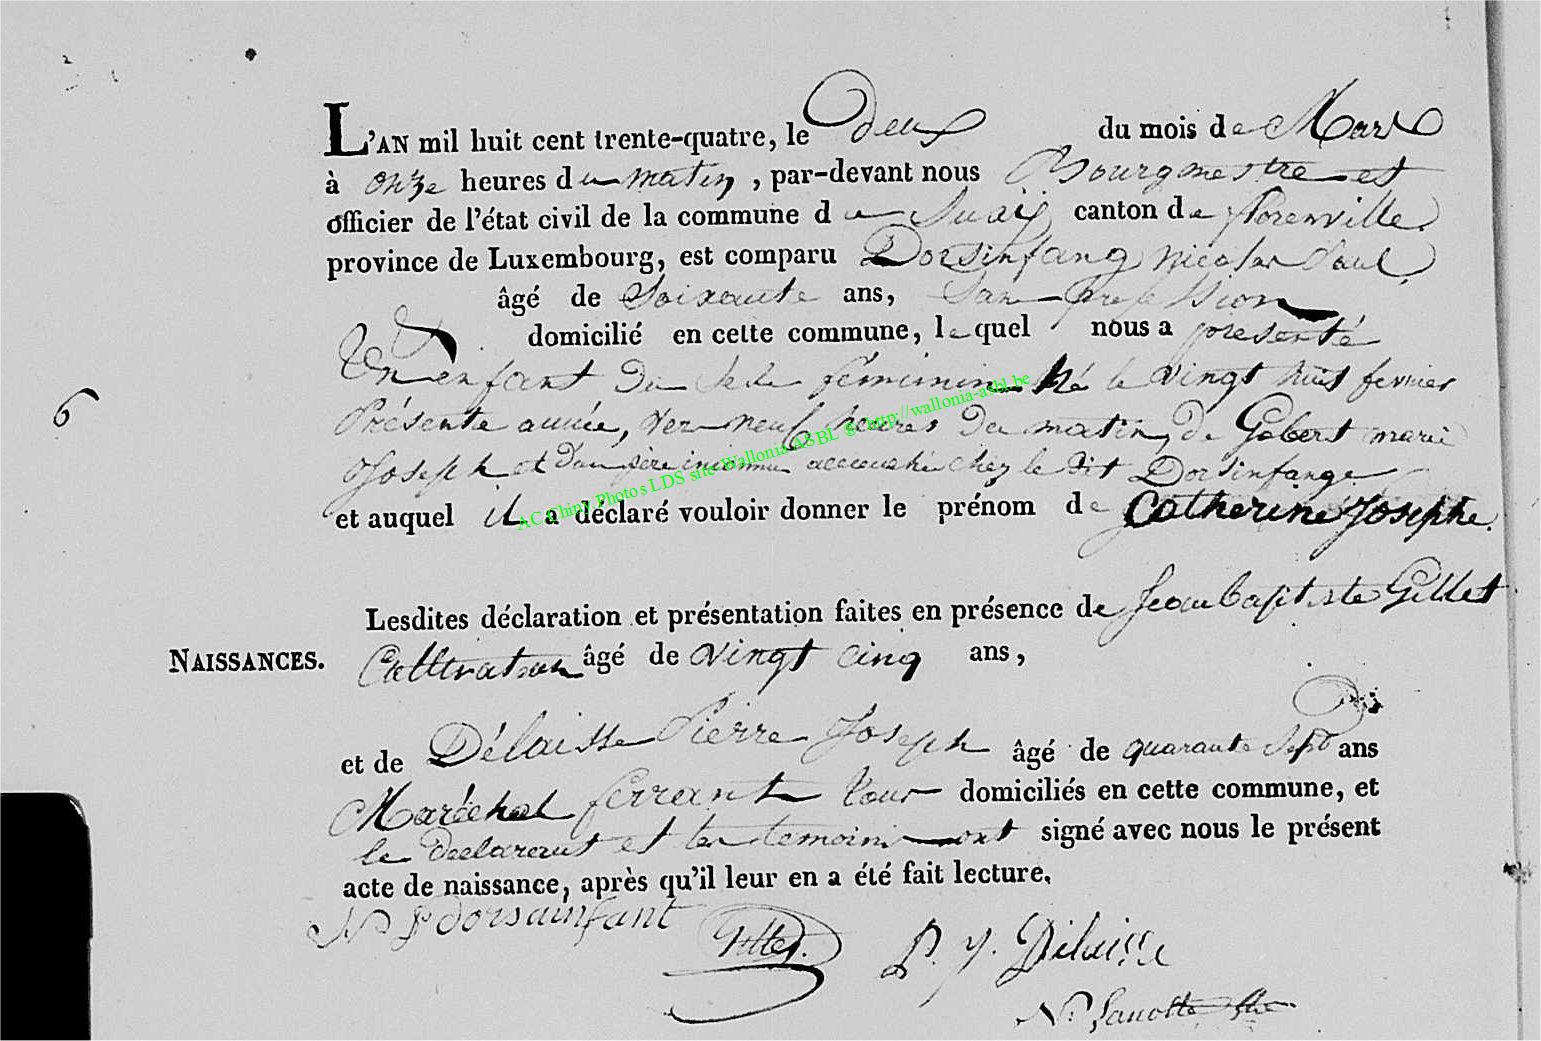 L'AN mil huit cent trente-quatre, le deux du mois de Mars
à onze heures du matin, par-devant nous Bourgmestre et
officier de l'état civil de la commune de canton de florenville
province de Luxembourg, est comparu Dorsinfang Nicolas Paul
âgé de Soixante ans, Sans profession
domicilié en cette commune, lequel nous a presenté
Un enfant du Sexe féminin né le vingt huit fevrier
Présente année, vers neuf heures du matin, de Gobert marie
Joseph et d'un père inconnu accouchée chez le dit Dorsinfange
AC Chiny Photos LDS site Wallonia ASBL g: http://wallonia-asbl.be
et auquel il a déclaré vouloir donner le prénom de Catherine Josephe.
6
Lesdites déclaration et présentation faites en présence de Jean baptiste Gillet
NAISSANCES.
Cultivateur âgé de vingt cinq ans,
et de Délaisse Pierre Joseph âgé de quarante Sept ans
Maréchal ferrant tous domiciliés en cette commune, et
le declarant et les temoins ont signé avec nous le présent
acte de naissance, après qu'il leur en a été fait lecture.
N P dorsainfant
Gillet.
P. J. Délaisse